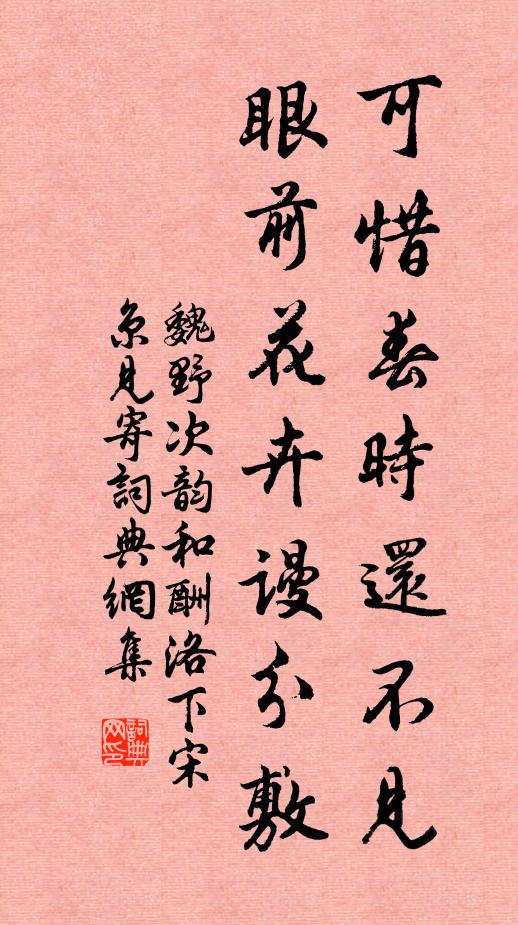 可惜春時還不見
眼前花卉謾分敷
魏野次韵和酬洛下宋
京見寄詞典網集
詞典
网印